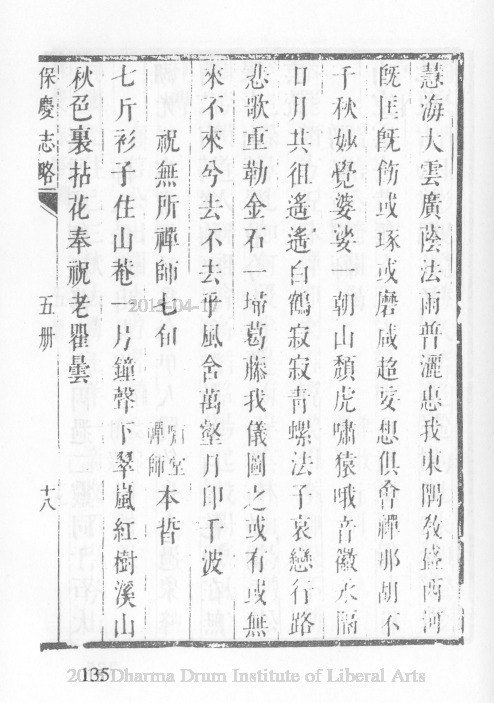 慧海大雲廣蔭法雨普灑惠我東隅教盛西河
既匡既飭或琢或磨咸超妄想俱會禪那胡不
千秋妙覺婆娑　朝山頹虎嘯猿哦音徽永隔
日月共徂遙遙白鶴寂寂青螺法子哀戀行路
悲歌重勒金石一埽葛藤我儀圖之或有或無
來不來兮去不去乎風含萬壑月印千波
祝無所禪師七旬 禪師本晢
七斤衫子住山菴一片鐘聲下翠嵐紅樹溪山
秋色裏拈花奉祝老瞿曇
保慶志略 五册 十八
135
Dharma Drum Institute of Liberal Arts